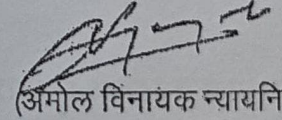 (अमोल विनायक न्यायनि